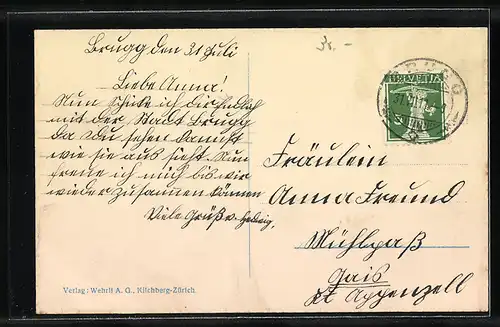 Fr. –
Brugg den 31 Juli
Liebe Anna!
Nun schicke ich dir endlich
mit der Stadt Brugg
da du sehen kannst
wie sie aus sieht. Nun
freue ich mich bis wir
wieder zusammen können
Viele Grüße v. Hedwig.
HELVETIA
BRUGG
Fräulein
Anna Freund
Mühlpaß
Gais
Kt Appenzell
Verlag: Wehrli A. G., Kilchberg-Zürich.